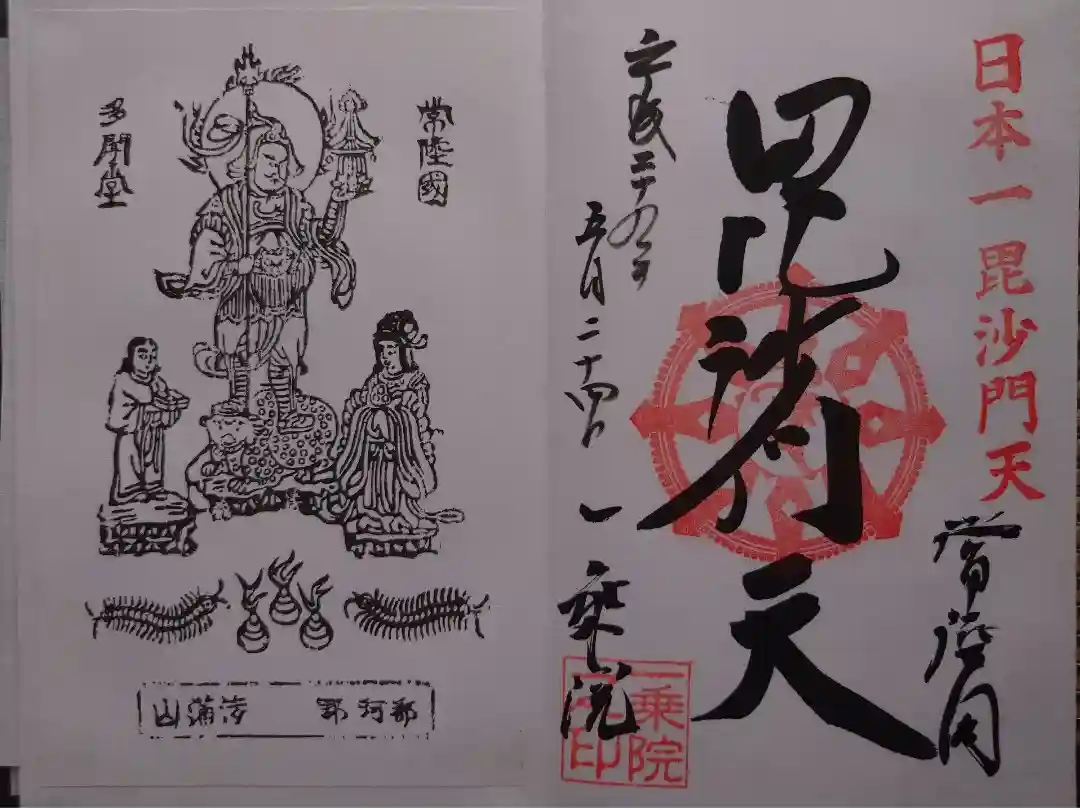 日本一毘沙門天
常陸国
毘沙門天
平成二十九年
五月二十四日
一乗院
一乗院
印
常陸國
多聞堂
那河郡
蒲山